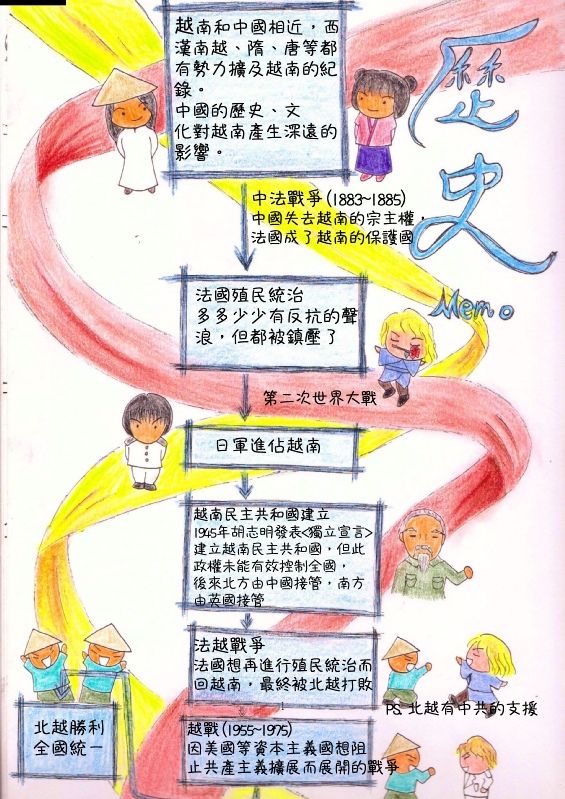 歷史
Memo
越南和中國相近，西
漢南越、隋、唐等都
有勢力擴及越南的紀
錄。
中國的歷史、文
化對越南產生深遠的
影響。
中法戰爭(1883~1885)
中國失去越南的宗主權，
法國成了越南的保護國
法國殖民統治
多多少少有反抗的聲
浪，但都被鎮壓了
第二次世界大戰
日軍進佔越南
越南民主共和國建立
1945年胡志明發表<獨立宣言>
建立越南民主共和國，但此
政權未能有效控制全國，
後來北方由中國接管，南方
由英國接管
法越戰爭
法國想再進行殖民統治而
回越南，最終被北越打敗
PS 北越有中共的支援
越戰(1955~1975)
因美國等資本主義國想阻
止共產主義擴展而展開的戰爭
北越勝利
全國統一